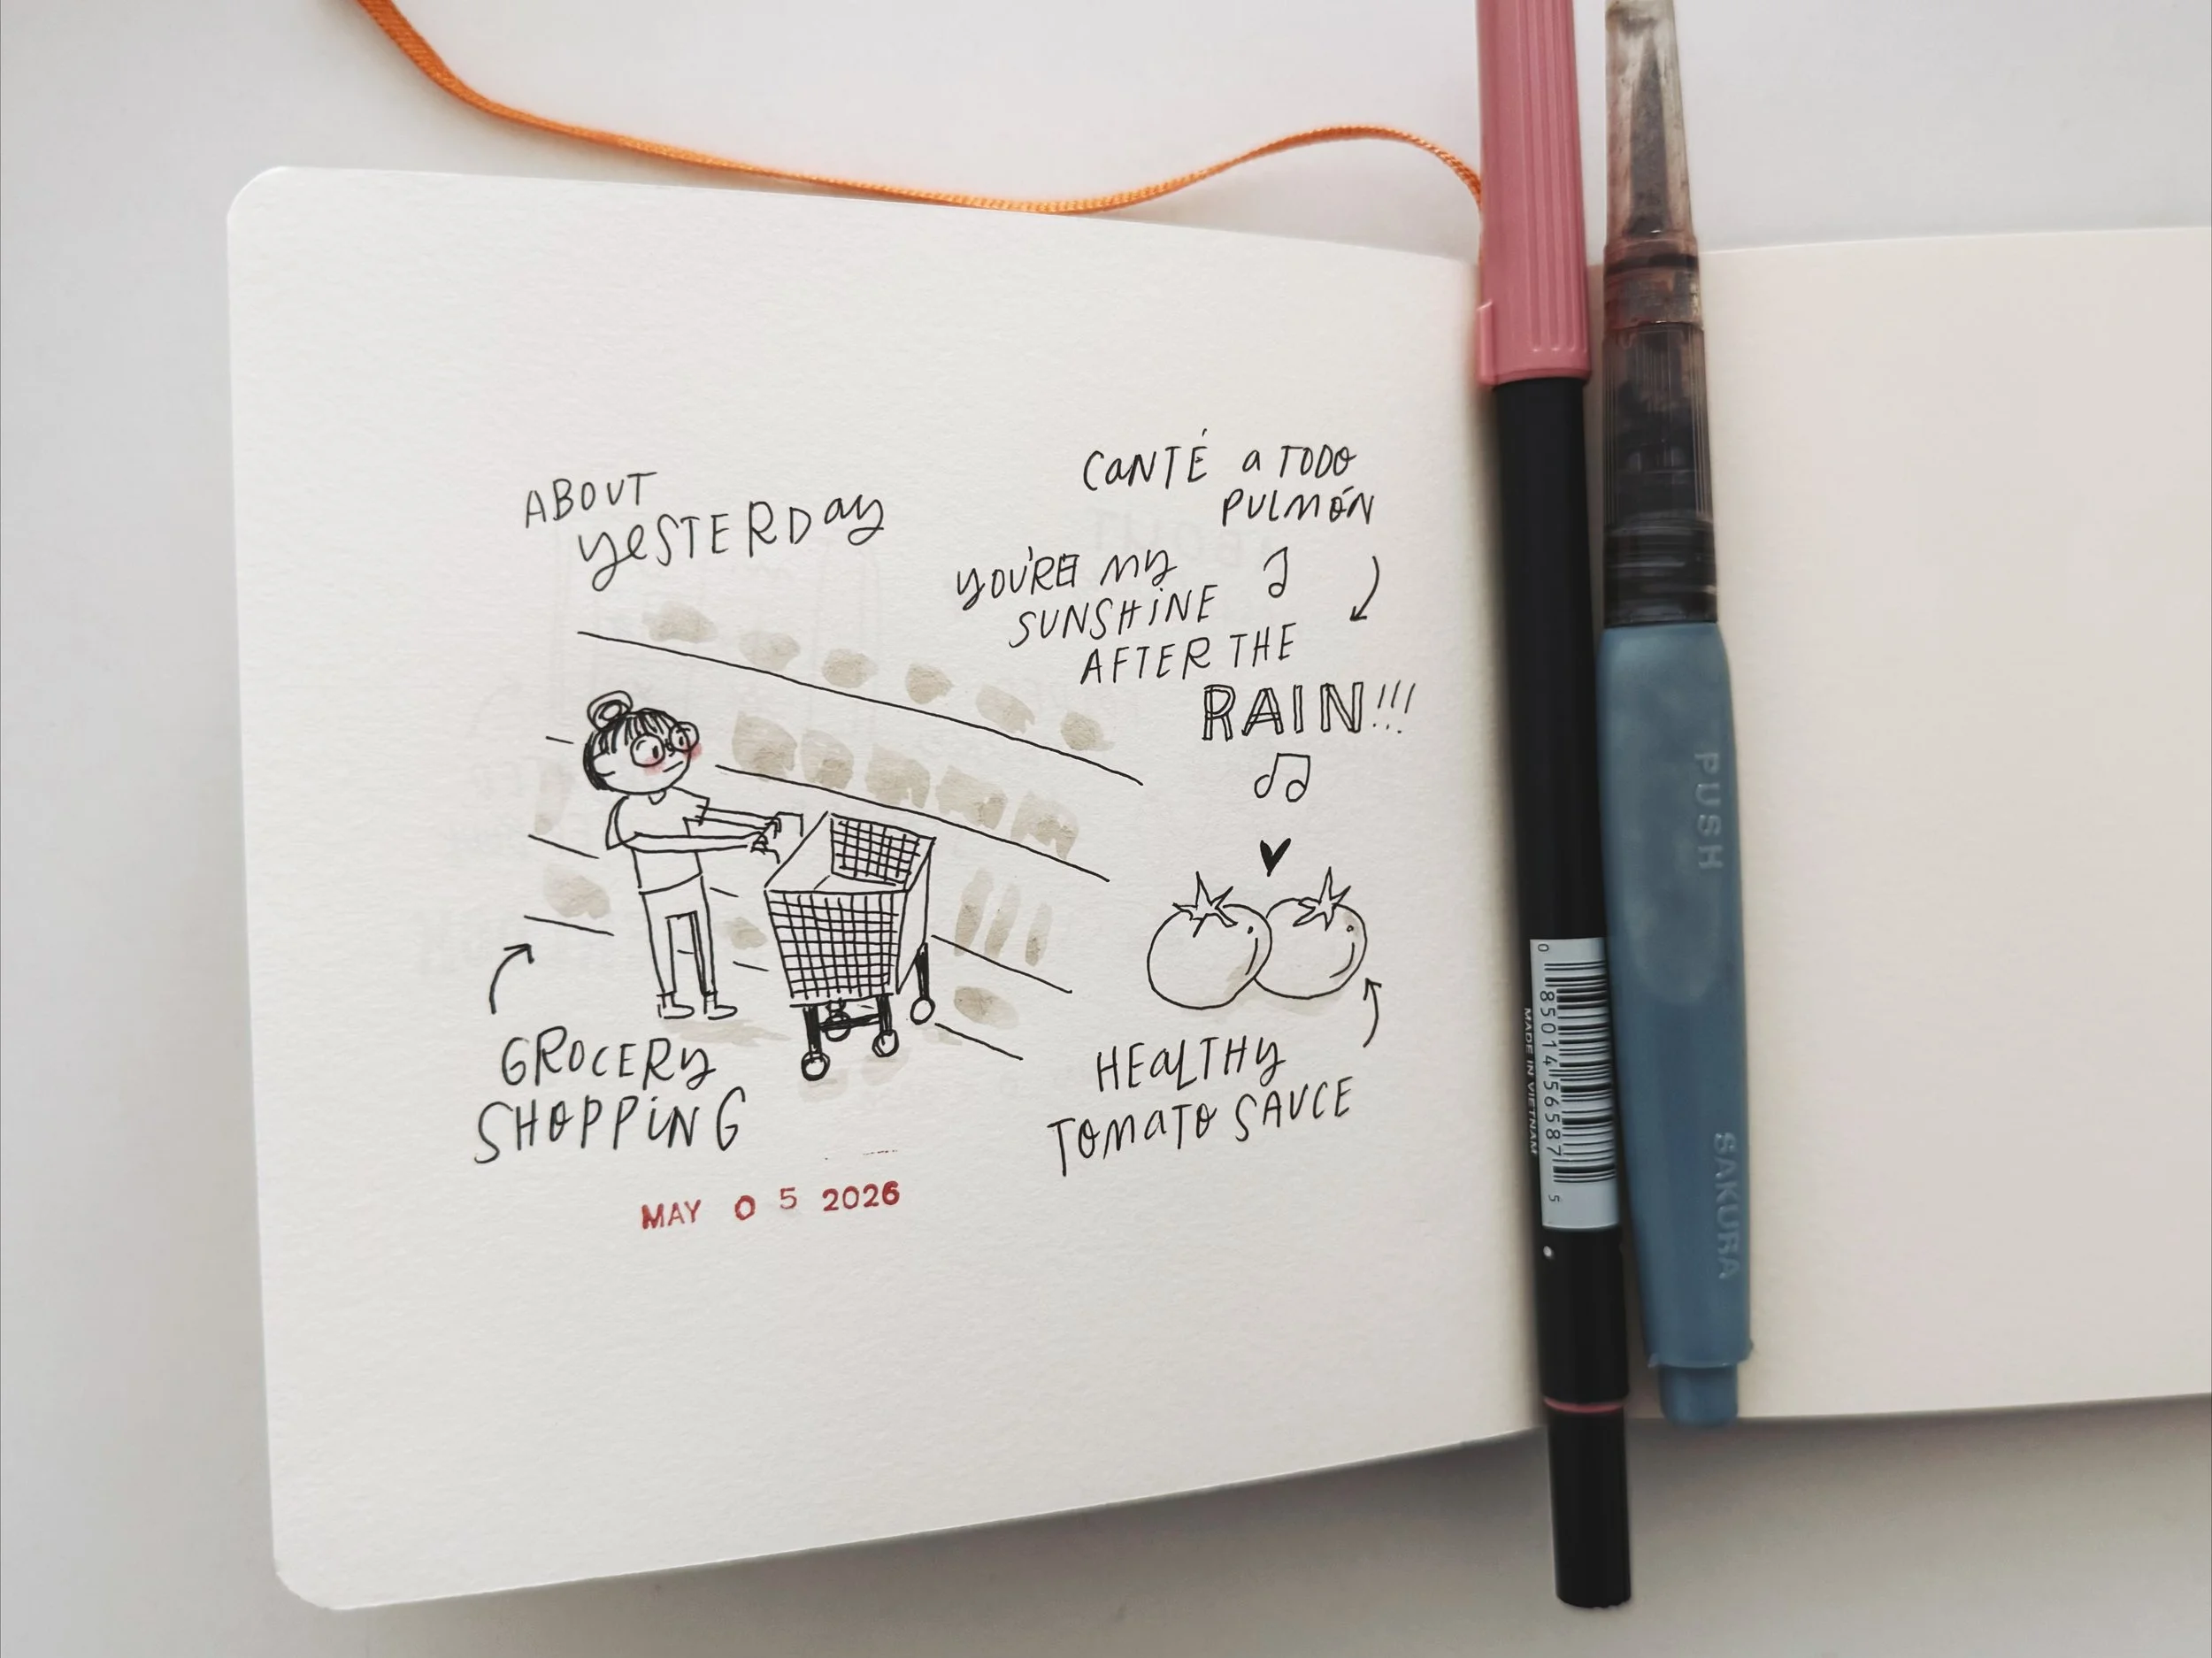 ABOUT
yESTERDay
CaNTÉ a TODO
PULMÓN
yOU'RE My
SUNSHiNE
AFTER THE
RAIN!!!
GROCERy
SHOPPiNG
HEaLTHy
TOMaTO SAUCE
MAY 05 2026
PUSH
SAKURA
0 85014 56587 5
MADE IN VIETNAM